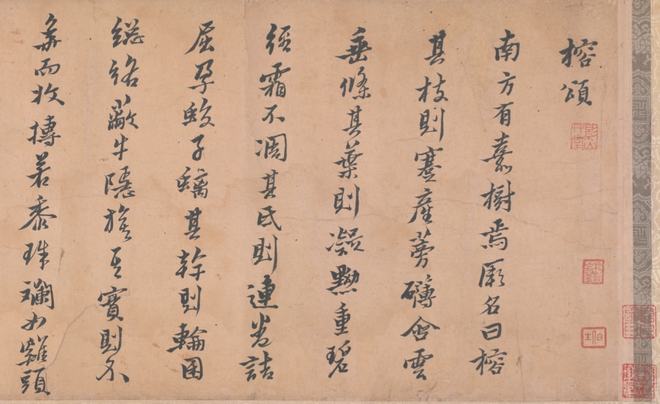 榕頌
南方有嘉樹焉厥名曰榕
其枝則蹇產蒡礴含雲
垂條其葉則凝黝重碧
經霜不凋其氐則連卷詰
屈孕蛟子螭其幹則輪囷
絡蔽牛隱旅其實則不
而 摶若黍珠斕如雞頭